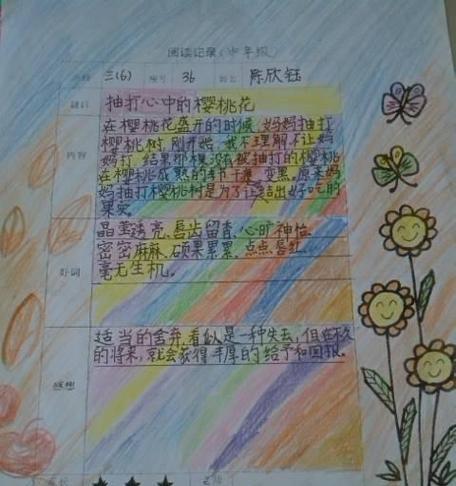 阅读记录(中年级)
班级 三(6) 座号 36 姓名 陈欣钰
题目 抽打心中的樱桃花
内容
在樱桃花盛开的时候,妈妈抽打
樱桃树,刚开始,我不理解,不让妈
妈打,结果那棵没有被抽打的樱桃
在樱桃成熟的季节干瘪、变黑。原来妈
妈抽打樱桃树是为了让它结出好吃的
果实。
好词
晶莹透亮、唇齿留香、心旷神怡、
密密麻麻、硕果累累、点点唇红、
毫无生机。
感想
适当的舍弃,看似是一种失去,但在不久
的将来,就会获得丰厚的给予和回报。